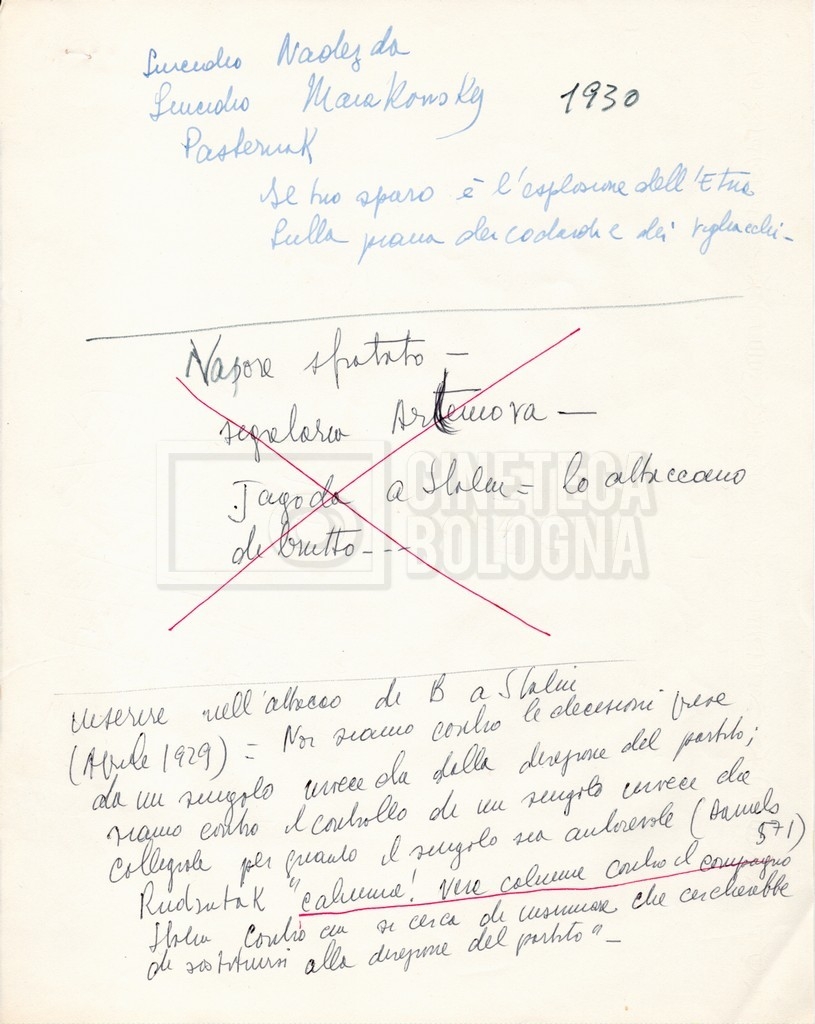 Suicidio Nadezda
Suicidio Maiakovsky 1930
Pasternak
Il tuo sparo è l'esplosione dell'Etna
sulla piana dei codardi e dei vigliacchi-
Napore sfatato -
segnalaria Artemova -
Jagoda a Stalin = lo attaccano
di brutto ---
CINETECA
BOLOGNA
inserire nell'attacco di B a Stalin
(Aprile 1929) = Noi siamo contro le decisioni prese
da un singolo invece che dalla direzione del partito;
siamo contro il controllo di un singolo invece che
collegiale per quanto il singolo sia autorevole (Daniels
571)
Rudzutak "calunnia! vere calunnie contro il compagno
Stalin contro cui si cerca di insinuare che cercherebbe
di sostituirsi alla direzione del partito" -